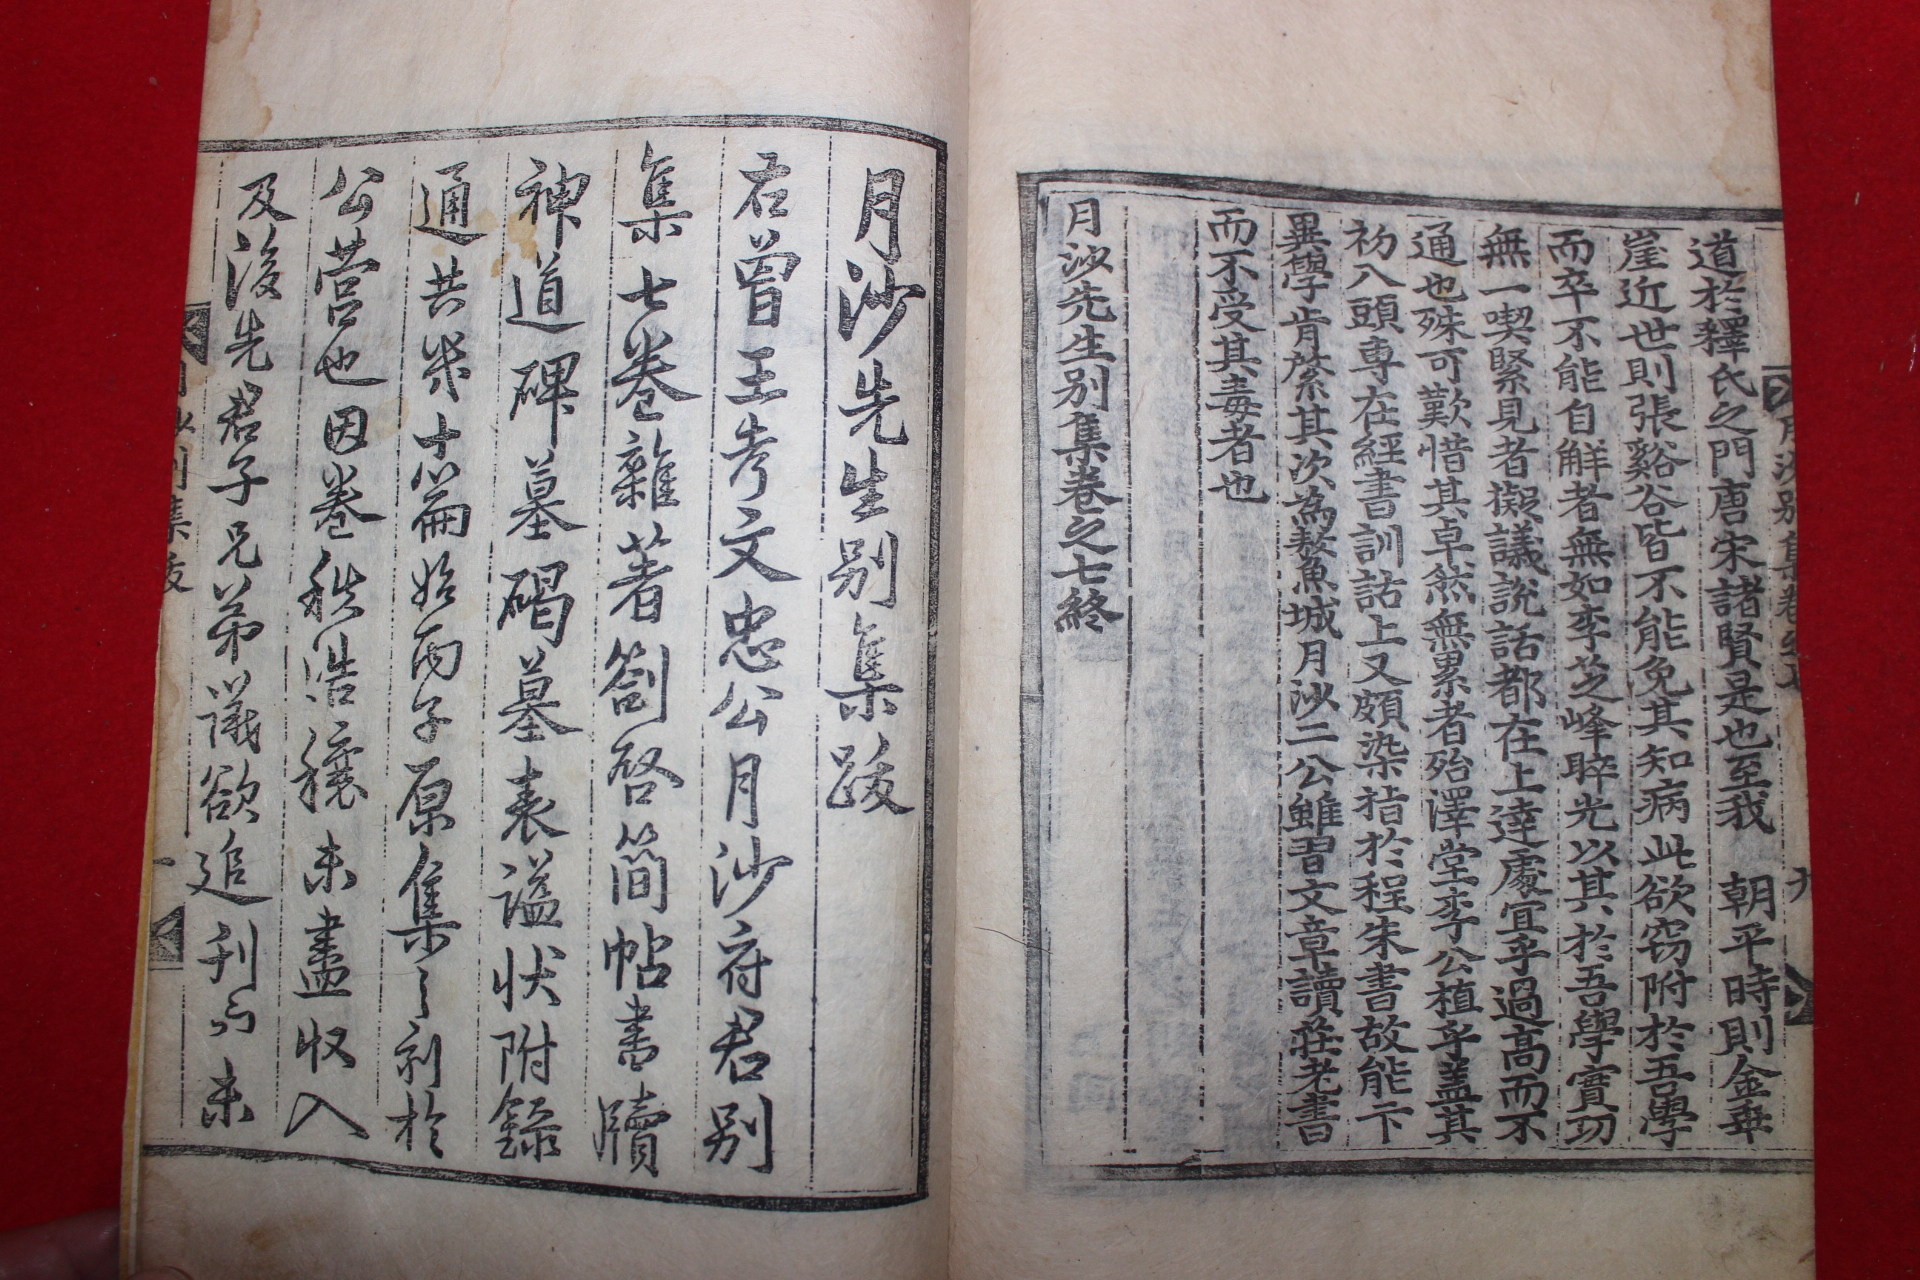 道於釋氏之門唐宋諸賢是也至我 朝平時則金乖
崖近世則張谿谷皆不能免其知病此欲窃附於吾學
而卒不能自解者無如李芝峰睟光以其於吾學實功
無一喫緊見者擬議說話都在上達處宜乎過高而不
通也殊可歎惜其卓然無累者殆澤堂李公植乎蓋其
初入頭專在經書訓詁上又頗染指於程朱書故能不
異學肯綮其次為敖魚城月沙二公雖習文章讀莊老書
而不受其毒者也
月沙先生別集卷之七終
月沙先生別集跋
右曾王考文忠公月沙府君別
集七卷雜著劄啓簡帖書牘
神道碑墓碣墓表謚狀附錄
通共幾十篇始丙子原集之刻於
公營也因卷秩浩穰未盡收入
及後先君子兄弟議欲追刊而未